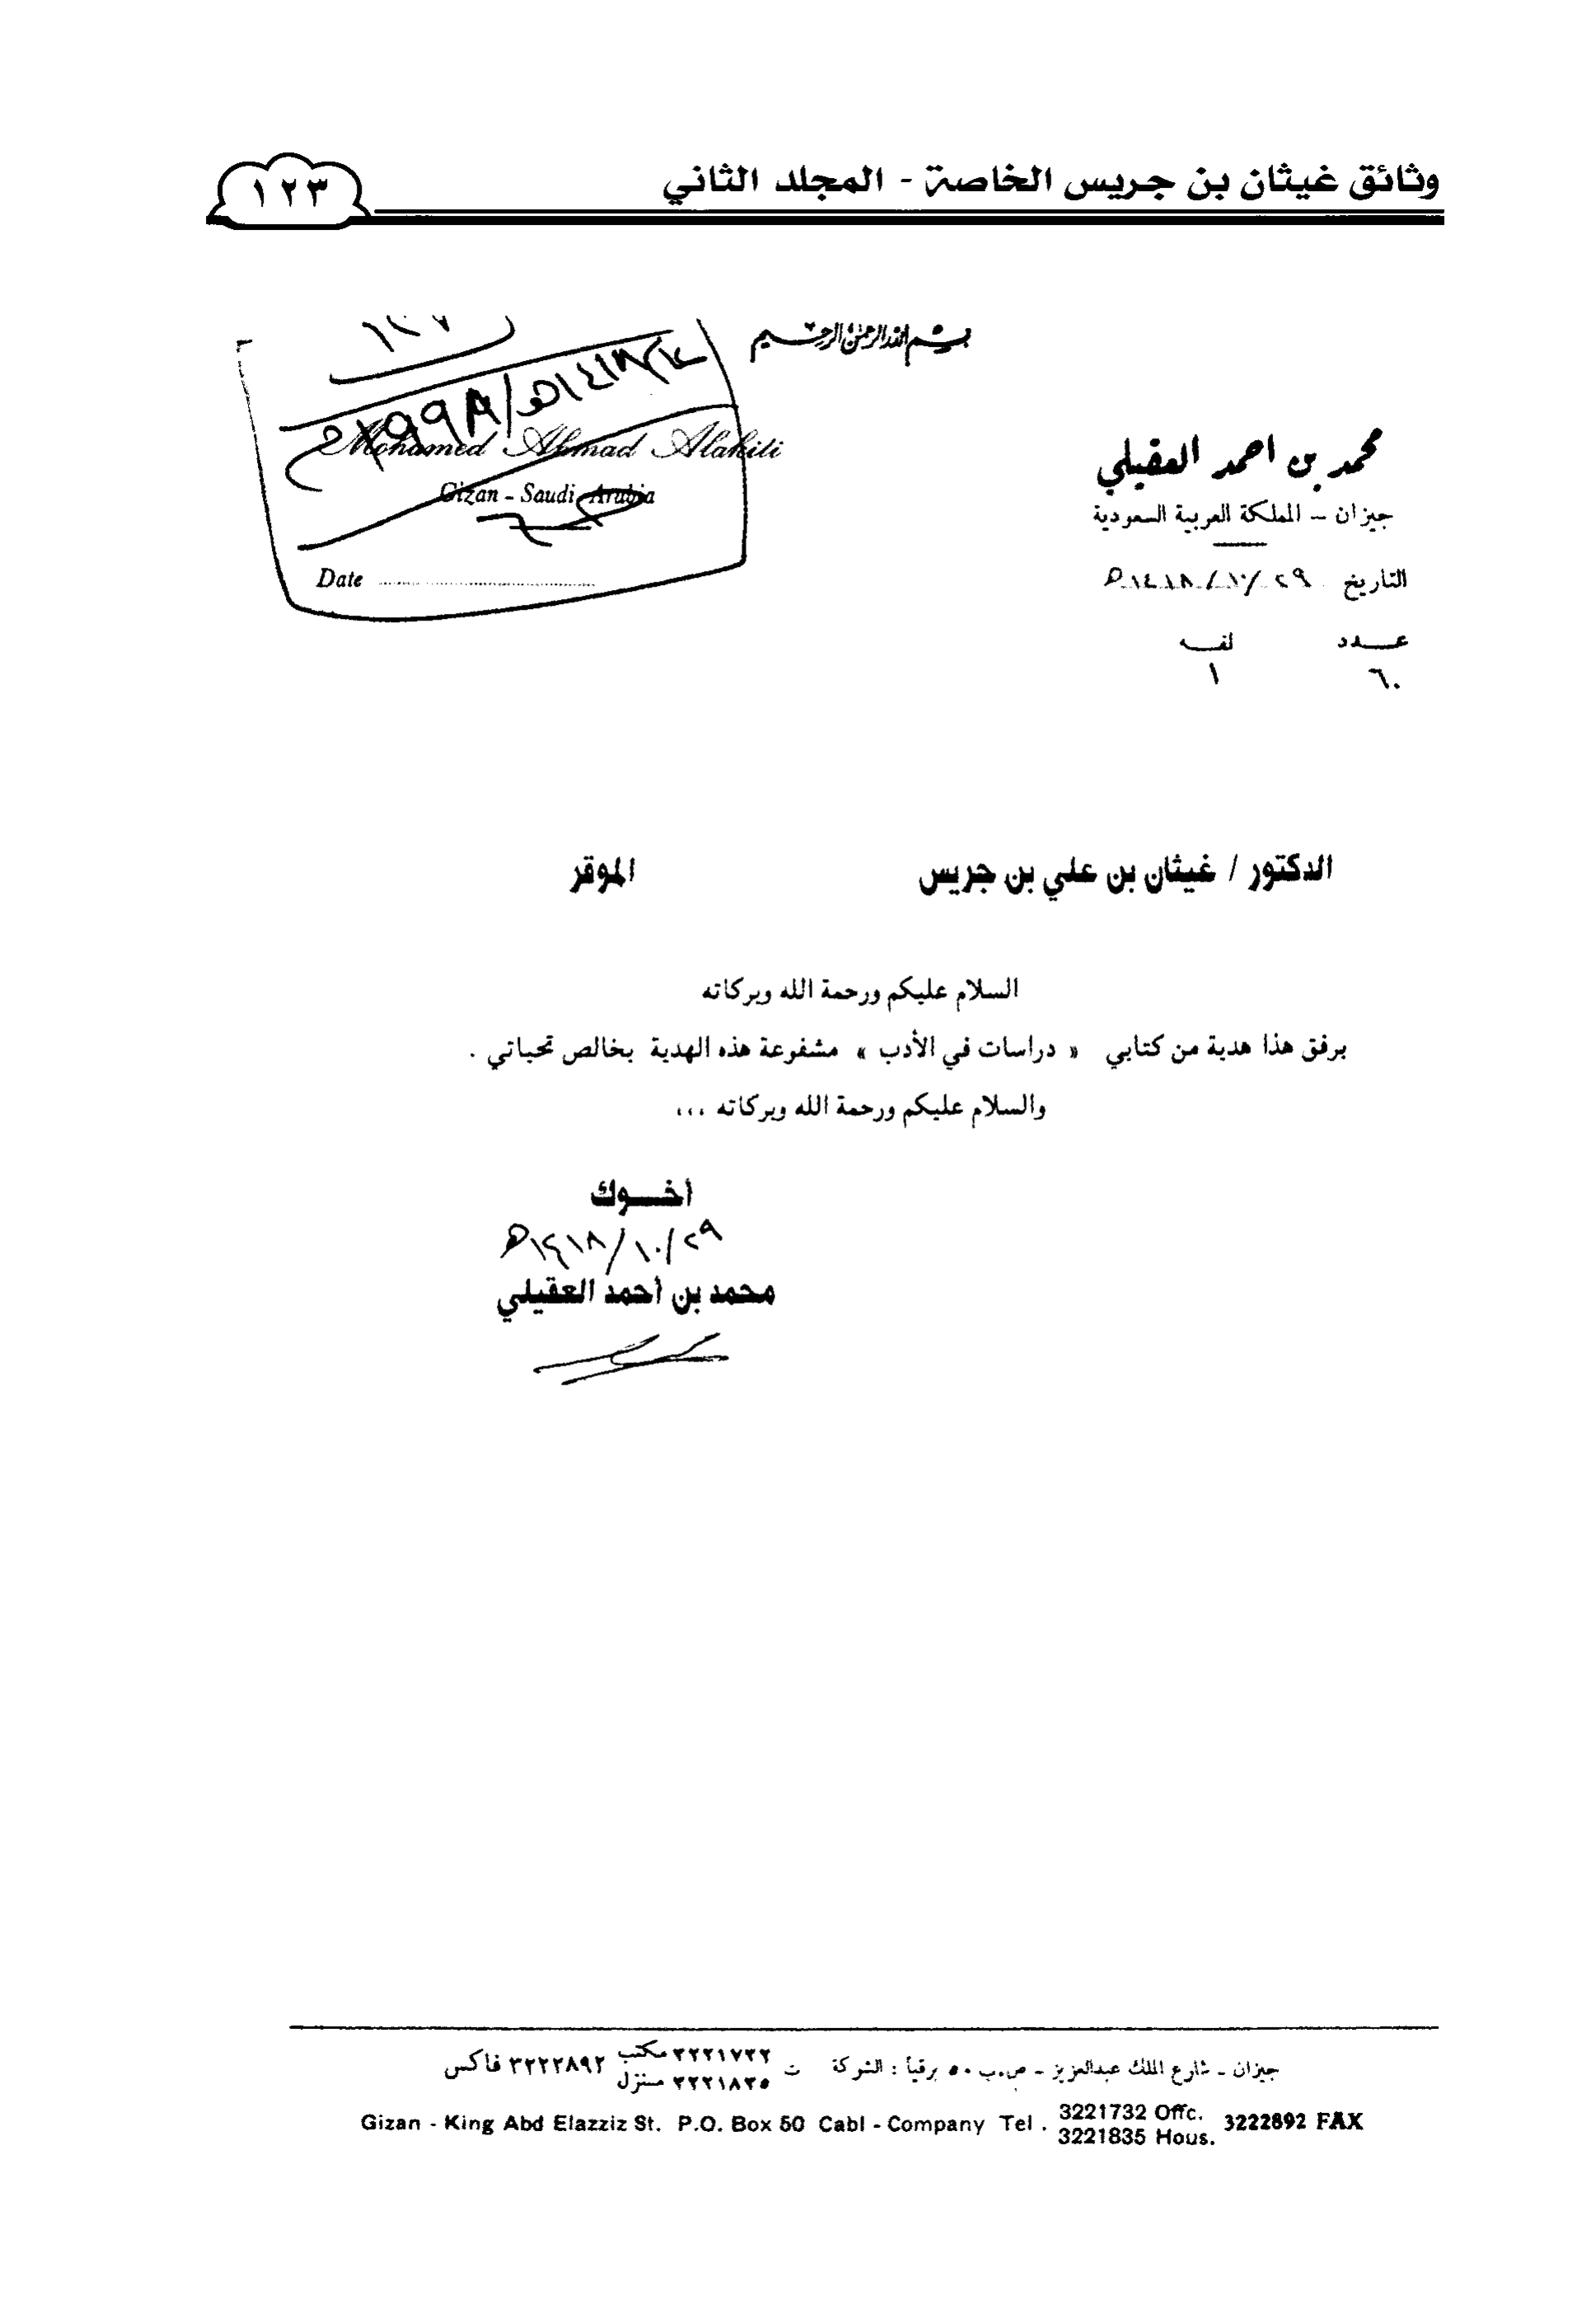 وثائق غيثان بن جريس الخاصة - المجلد الثاني
١٢٣
بسم الله الرحمن الرحيم
١٢٧
١٤١٨هـ/١٩٩٨م
Mohamed Ahmad Alakili
Gizan - Saudi Arabia
Date
محمد بن احمد العقيلي
جيزان - المملكة العربية السعودية
التاريخ ٢٩/١٠/١٤١٨هـ
عــدد لفـه
٦٠ ١
الدكتور / غيثان بن علي بن جريس الموقر
السلام عليكم ورحمة الله وبركاته
برفق هذا هدية من كتابي « دراسات في الأدب » مشفوعة هذه الهدية بخالص تحياتي .
والسلام عليكم ورحمة الله وبركاته ،،،
أخــوك
٢٩/١٠/١٤١٨هـ
محمد بن أحمد العقيلي
جيزان - شارع الملك عبدالعزيز - ص.ب ٥٠ برقياً : الشركة ت ٣٢٢١٧٣٢ مكتب ٣٢٢٢٨٩٢ فاكس
٣٢٢١٨٣٥ منزل
Gizan - King Abd Elazziz St. P.O. Box 50 Cabl - Company Tel . 3221732 Offc. 3222892 FAX
3221835 Hous.